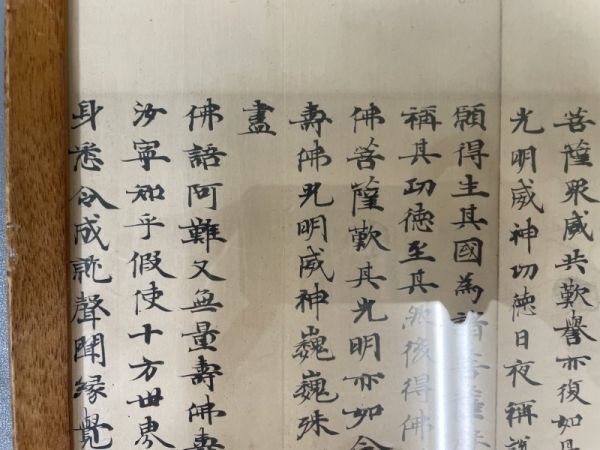 菩薩眾咸共歎譽亦復如是
光明威神功德日夜稱說
願得生其國為諸菩薩
稱其功德至其然後得佛
佛菩薩歎其光明亦如今
壽佛光明威神巍巍殊
盡
佛語阿難又無量壽佛壽
汝寧知乎假使十方世界
身悉令成就聲聞緣覺